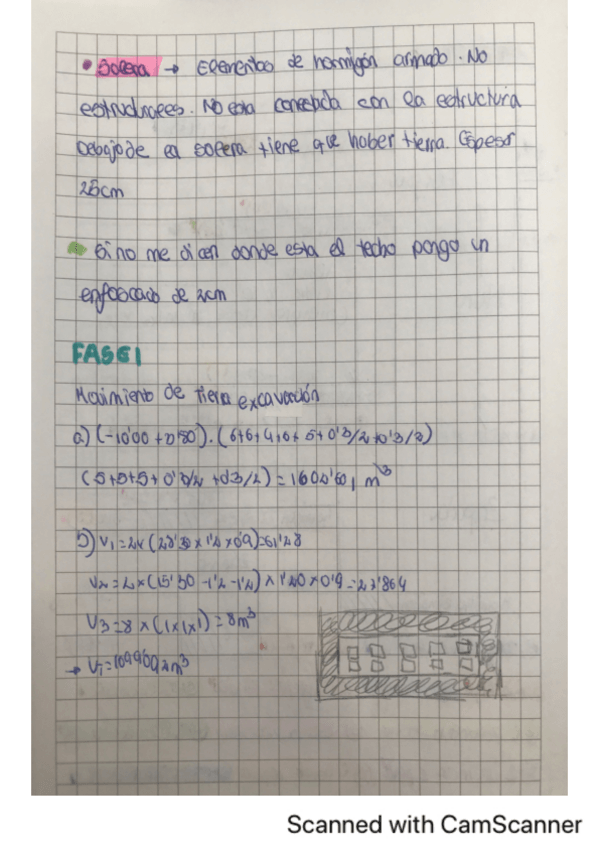 • Solera → Elementos de hormigón armado. No
estructurales. No esta conectada con la estructura
Debajo de la solera tiene que haber tierra. Espesor
25cm
Si no me dicen donde esta el techo pongo un
enfoscado de 2cm
FASE 1
Movimiento de tierra excavación
a) (-10'00 + 0'80) · (6+6+4,6+5+0'3/2+0'3/2)
(5+5+5+0'3/2+0'3/2) = 1602'60, m³
b) V1 = 2x (28'30 x 1'2 x 0'9) = 61'28
V2 = 2 x (15'30 -1'2 -1'2) x 1'20 x 0'9 = 27'864
V3 = 8 x (1x1x1) = 8m³
→ VT =
Scanned with CamScanner